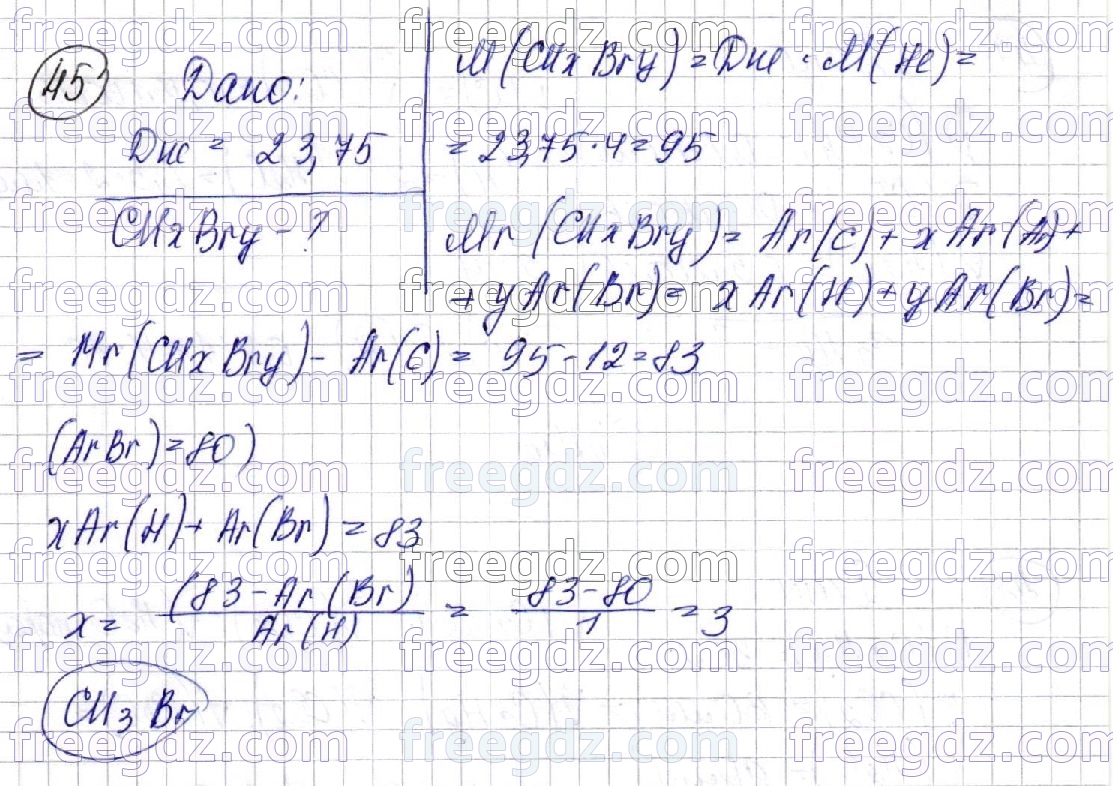 45
Дано:
Dне = 23,75
CHxBry - ?
M(CHxBry) = Dне · M(He) =
= 23,75 · 4 = 95
Mr(CHxBry) = Ar(C) + xAr(
+ yAr(Br) = xAr(H) + yAr(Br) =
= Mr(CHxBry) - Ar(C) = 95 - 12 = 83
(ArBr) = 80)
xAr(H) + Ar(Br) = 83
x = (83 - Ar(Br) / Ar(H) = 83 - 80 / 1 = 3
CH3Br
freegdz.com